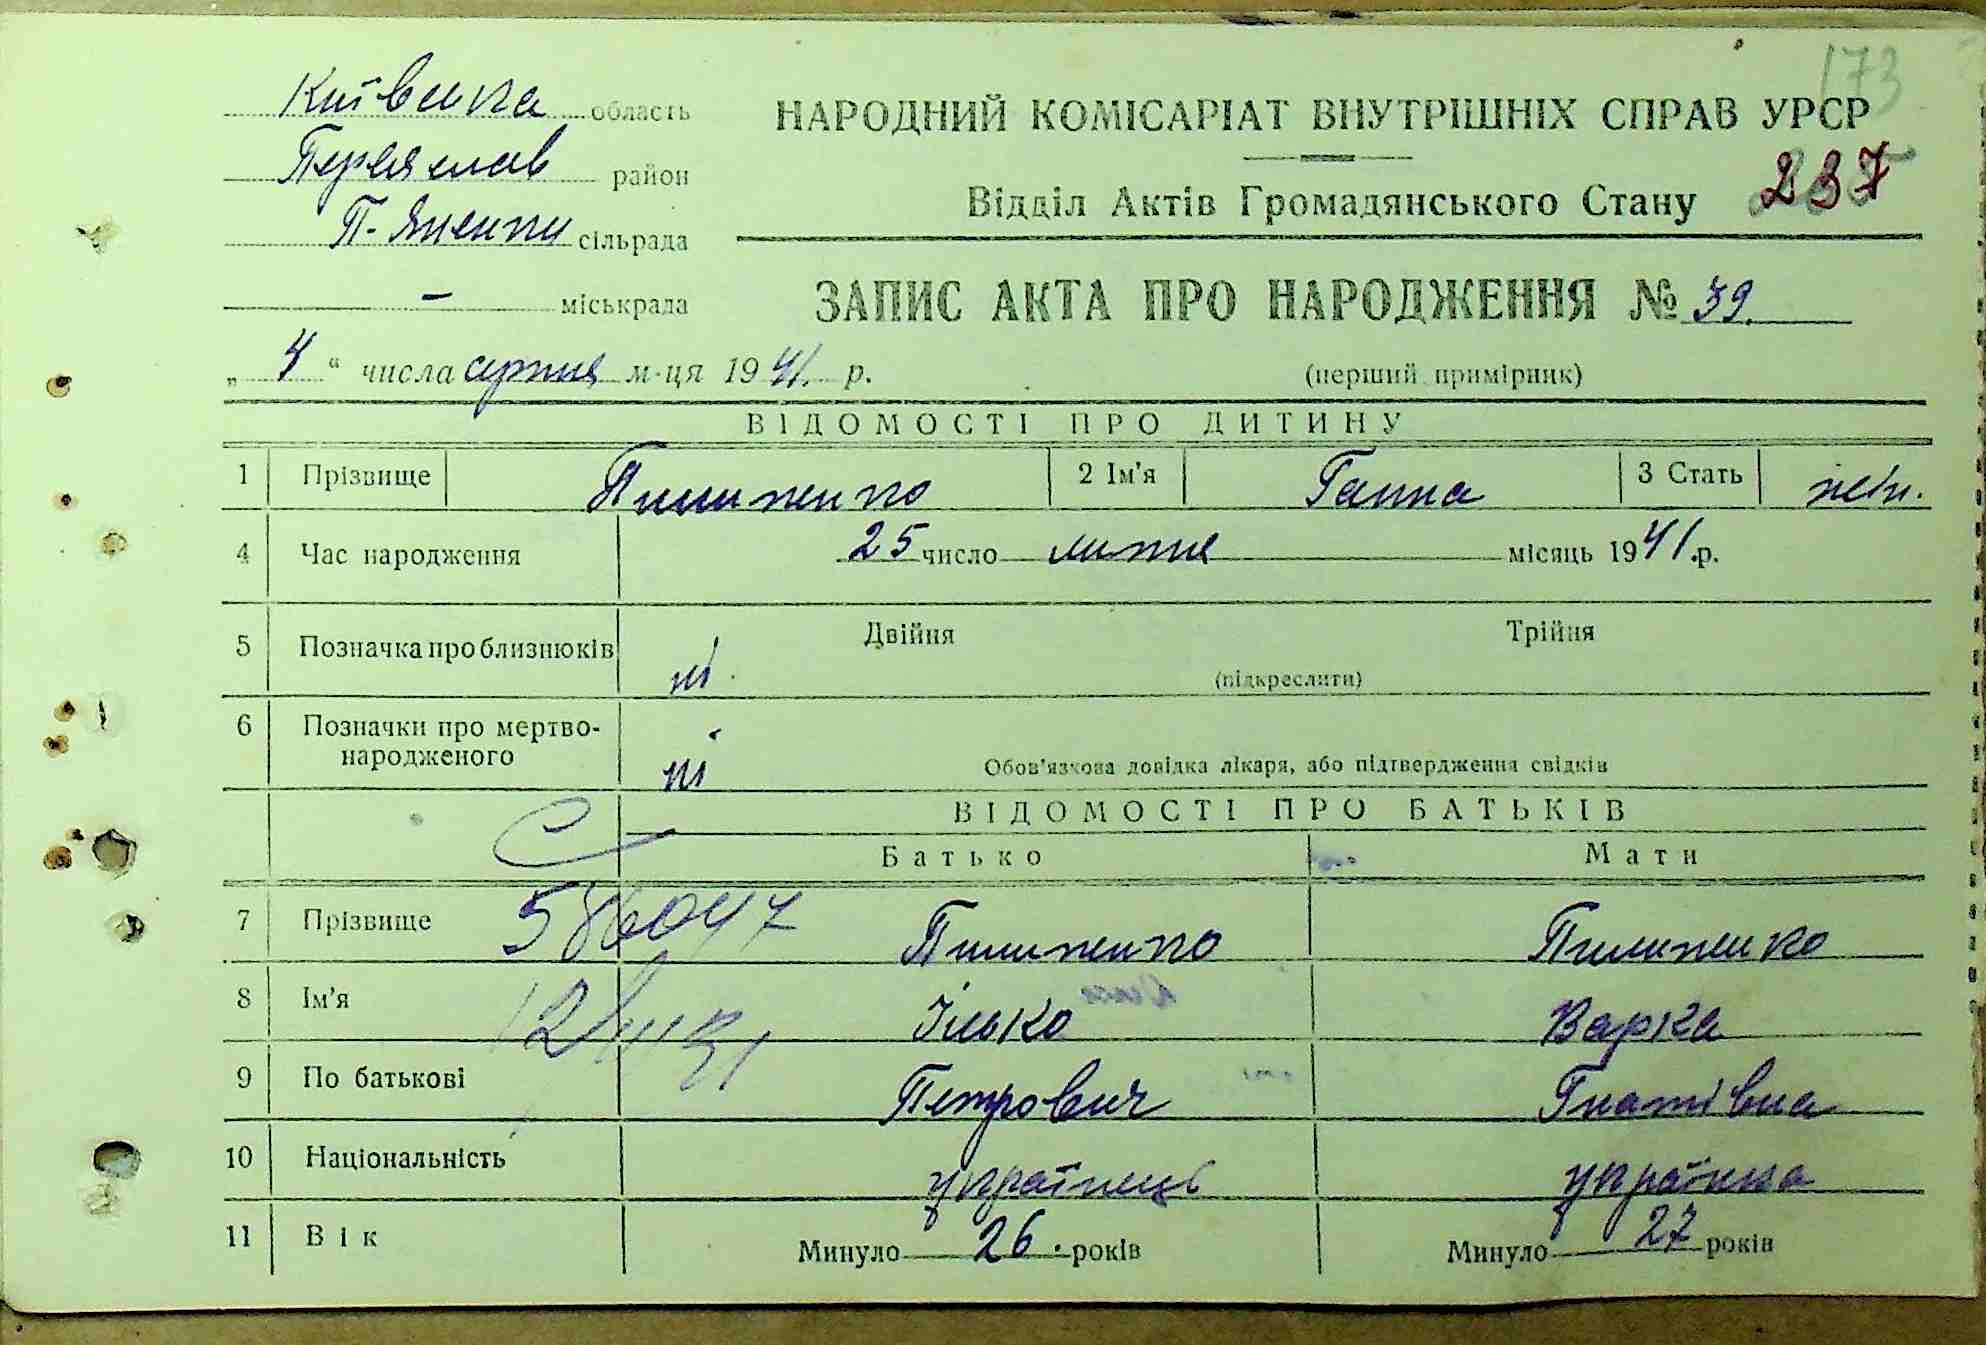 173
Київська область
НАРОДНИЙ КОМІСАРІАТ ВНУТРІШНІХ СПРАВ УРСР
Переяслав район
237
Відділ Актів Громадянського Стану
сільрада
— міськрада
ЗАПИС АКТА ПРО НАРОДЖЕННЯ № 39.
„4“ числа серпня м-ця 1941. р.
(перший примірник)
ВІДОМОСТІ ПРО ДИТИНУ
1 Прізвище Пилипенко 2 Ім'я Ганна 3 Стать жін.
4 Час народження 25 число липня місяць 1941.р.
5 Позначка про близнюків ні. Двійня Трійня
(підкреслити)
6 Позначки про мертво-
народженого ні Обов'язкова довідка лікаря, або підтвердження свідків
ВІДОМОСТІ ПРО БАТЬКІВ
Батько Мати
7 Прізвище 586047 Пилипенко Пилипенко
8 Ім'я Ілько Варка
9 По батькові Петрович Гнатівна
10 Національність українець українка
11 Вік Минуло 26. років Минуло 27 років